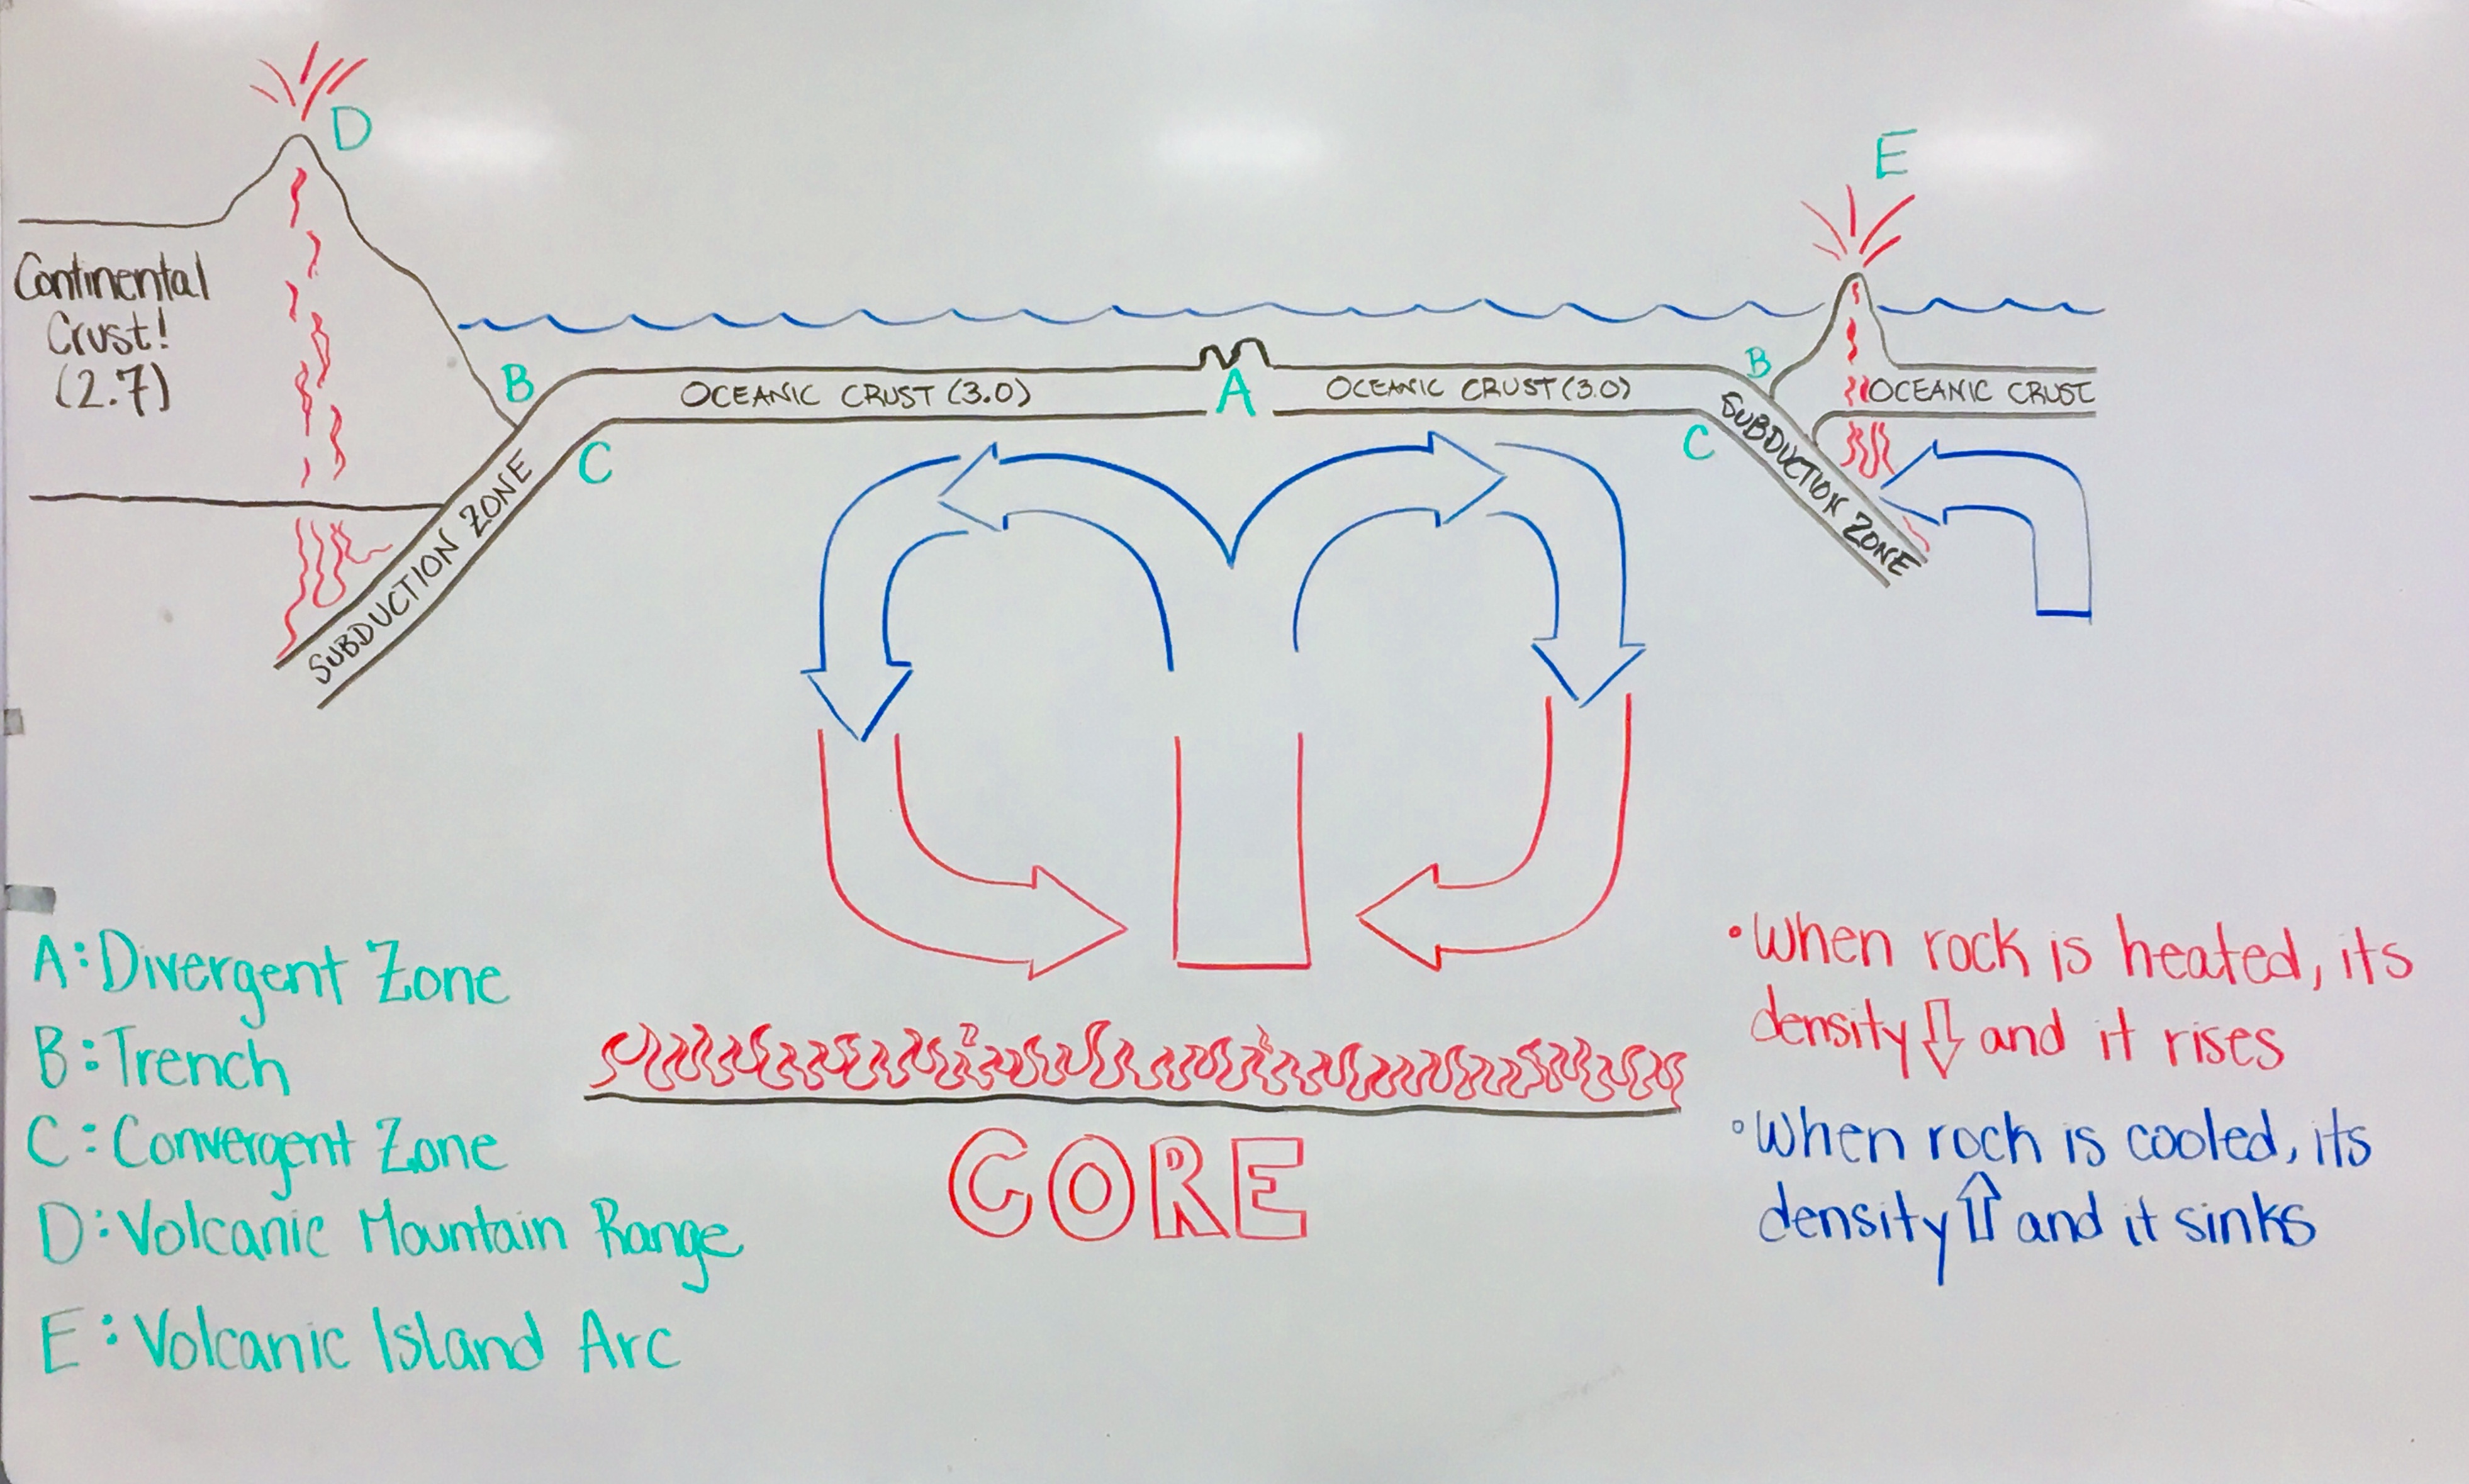 D
E
Continental
Crust!
(2.7)
B
OCEANIC CRUST (3.0)
A
OCEANIC CRUST (3.0)
B
OCEANIC CRUST
C
C
SUBDUCTION ZONE
SUBDUCTION ZONE
A: Divergent Zone
B: Trench
C: Convergent Zone
D: Volcanic Mountain Range
E: Volcanic Island Arc
CORE
•When rock is heated, its
density ⇩ and it rises
•When rock is cooled, its
density ⇧ and it sinks